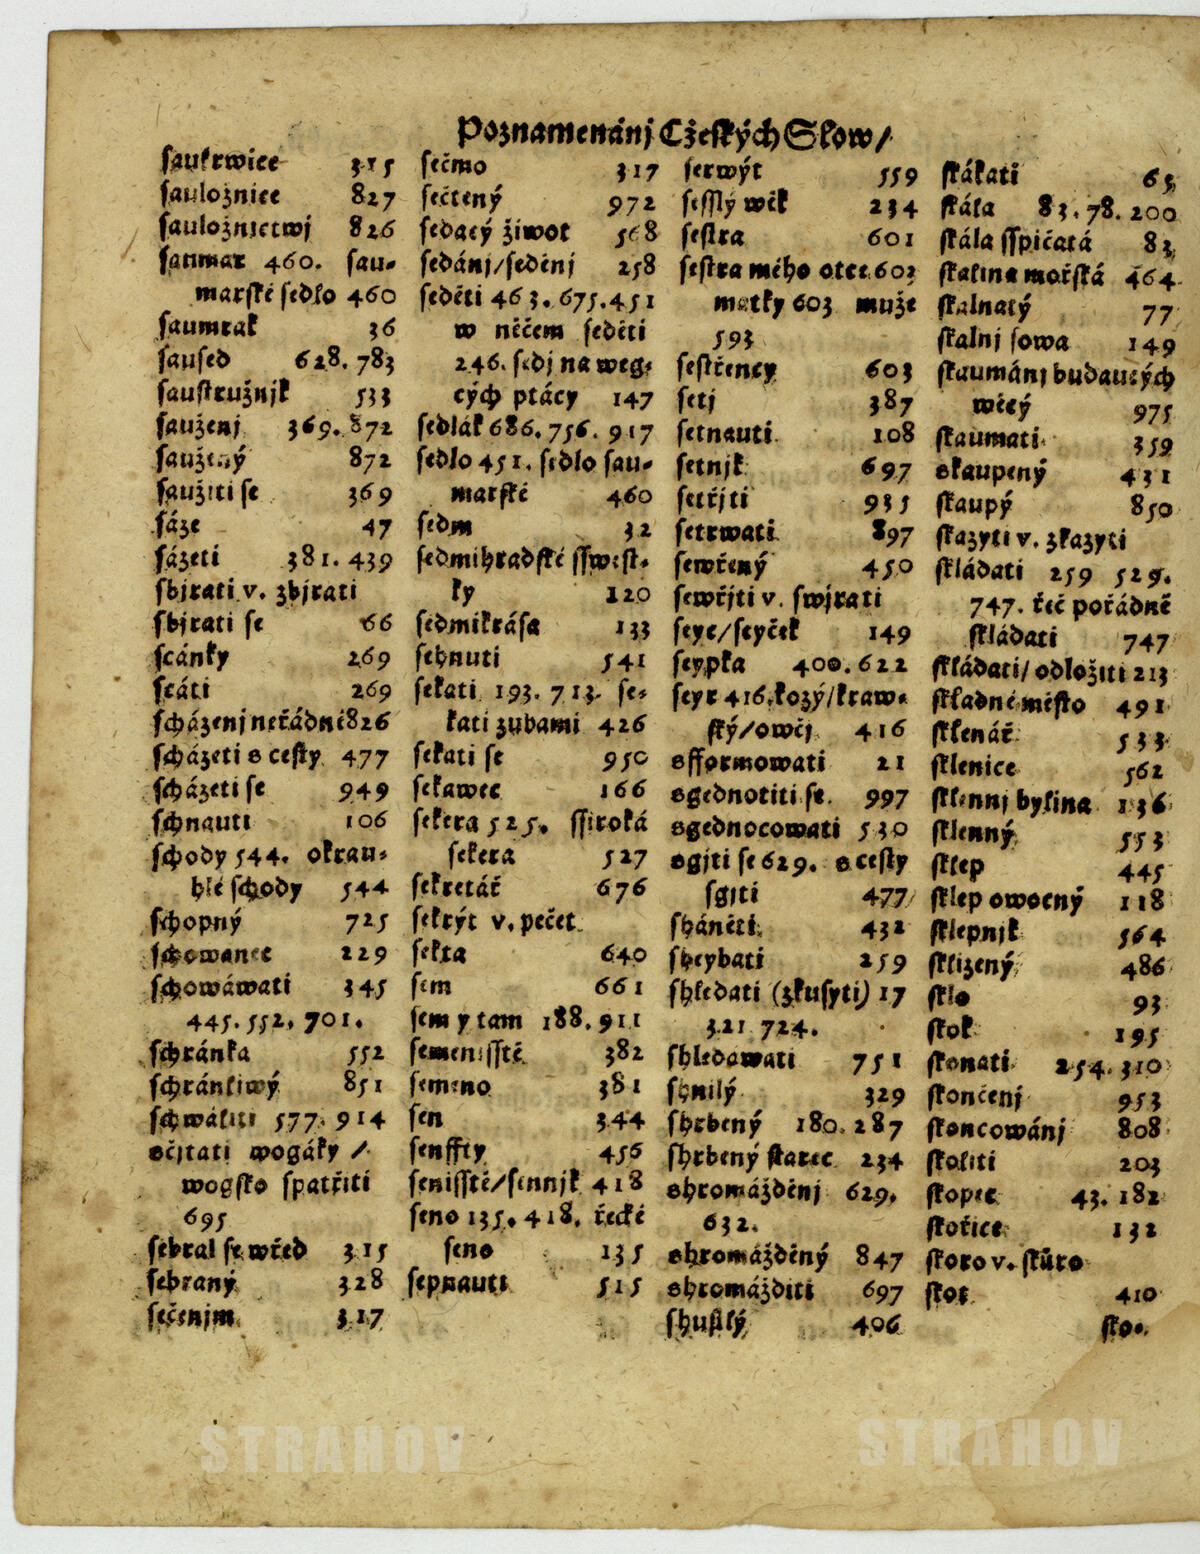 Poznamenánj Cžeſkých Slow/
ſaukrwice 315
ſauložnice 827
ſauložnictwj 826
ſaumar 460. ſau-
marſké ſedlo 460
ſaumrak 36
ſauſed 628. 783
ſauſtružnjk 533
ſauženj 369. 872
ſaužený 872
ſaužiti ſe 369
ſáze 47
ſázeti 381. 439
ſbjrati v. zbjrati
ſbjrati ſe 66
ſcánky 269
ſcáti 269
ſcházenj neřádné 826
ſcházeti s ceſty 477
ſcházeti ſe 949
ſchnauti 106
ſchody 544. okrau-
hlé ſchody 544
ſchopný 725
ſchowanec 229
ſchowáwati 345
445. 552. 701.
ſchránka 552
ſchránliwý 851
ſchwáliti 577. 914
sčjtati wogáky /
wogſko ſpatřiti
695
ſebral ſe wřed 315
ſebraný 328
ſečenjm 317
ſečmo 317
ſečtený 972
ſedacý žiwot 568
ſedánj/ſeděnj 258
ſeděti 463. 675. 451
w něčem ſeděti
246. ſedj na weg-
cých ptácy 147
ſedlák 686. 756. 917
ſedlo 451. ſedlo ſau-
marſké 460
ſedm 32
ſedmihradſké ſſweſt-
ky 120
ſedmikráſa 133
ſehnuti 541
ſekati 193. 713. ſe-
kati zubami 426
ſekati ſe 950
ſekawec 166
ſekera 525. ſſiroká
ſekera 527
ſekretář 676
ſekrýt v. pečet
ſekta 640
ſem 661
ſem y tam 188. 911
ſemeniſſtě 382
ſemeno 381
ſen 344
ſenffty 456
ſeniſſtě/ſennjk 418
ſeno 135. 418. řecké
ſeno 135
ſepnauti 515
ſerwýt 559
ſeſſlý wěk 234
ſeſtra 601
ſeſtra mého otce 603
matky 603 muže
593
ſeſtřency 603
ſetj 387
ſetnauti 108
ſetnjk 697
ſetřjti 935
ſetrwati 897
ſewřený 450
ſewřjti v. ſwjrati
ſeyc/ſeyček 149
ſeypka 400. 622
ſeyr 416. kozý/kraw-
ſký/owčj 416
sfformowati 21
sgednotiti ſe 997
sgednocowati 530
sgjti ſe 629. s ceſty
ſgjti 477
ſháněti 432
ſheybati 259
ſhledati (zkuſyti) 17
321 724.
ſhledawati 751
ſhnilý 329
ſhrbený 180. 287
ſhrbený ſtarec 234
shromážděnj 629.
632.
shromážděný 847
shromážditi 697
ſhuſtlý 406
ſkákati 65
ſkála 83. 78. 200
ſkála ſſpičatá 83
ſkalina mořſká 464
ſkalnatý 77
ſkalnj ſowa 149
ſkaumánj budaucých
wěcý 975
ſkaumati 359
skaupený 431
ſkaupý 850
ſkazyti v. zkazyti
ſkládati 259 529.
747. řeč pořádně
ſkládati 747
ſkládati/odložiti 213
ſkladné město 491
ſklenář 533
ſklenice 562
ſklennj bylina 136
ſklenný 553
ſklep 445
ſklep owocný 118
ſklepnjk 564
ſklizený 486
ſklo 93
ſkok 195
ſkonati 254. 310
ſkončenj 953
ſkoncowánj 808
ſkoliti 203
ſkopec 43. 182
ſkořice 132
ſkoro v. ſkůro
ſkot 410
ſko-
STRAHOV
STRAHOV